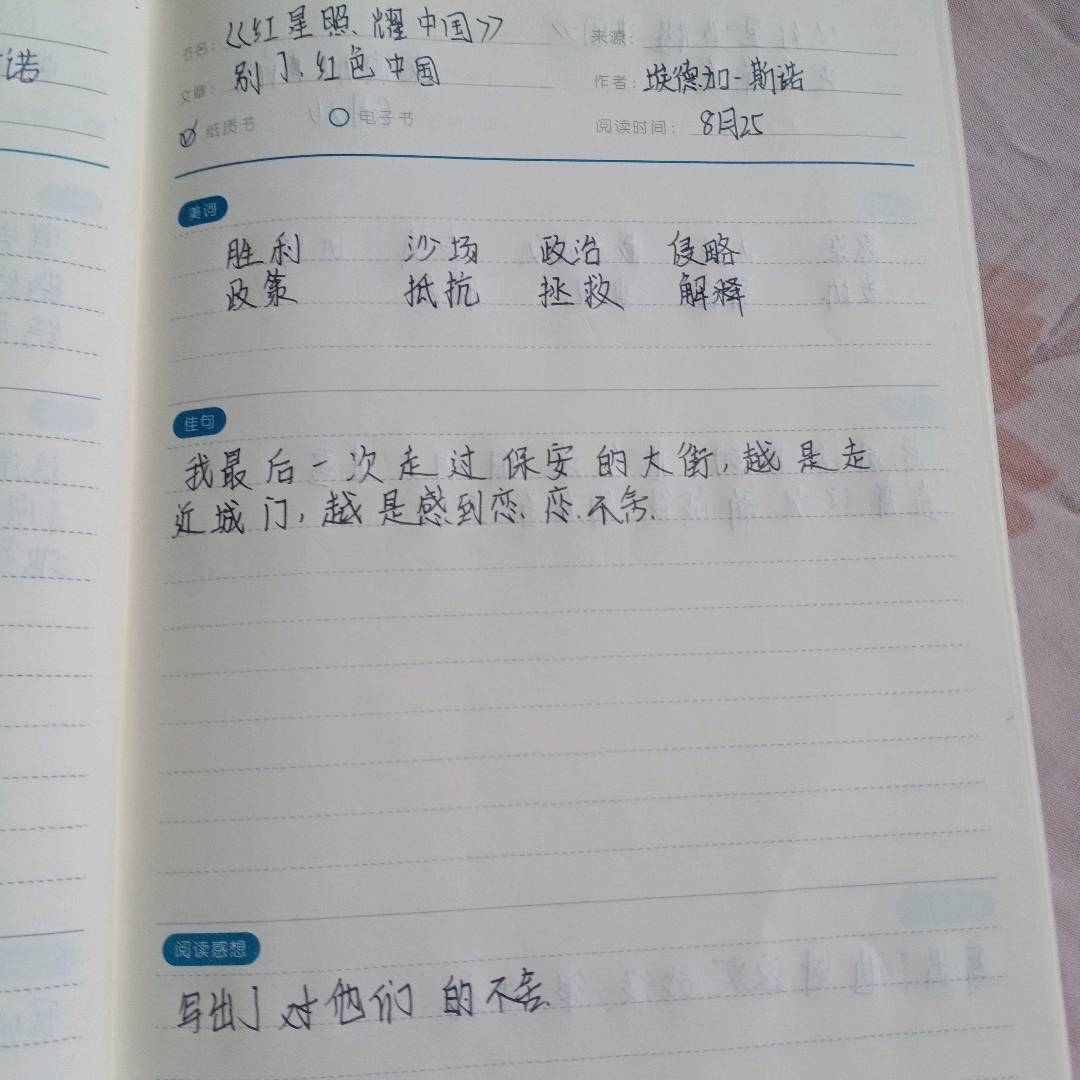 诺
书名: 《红星照耀中国》 来源:
文章: 别了,红色中国 作者: 埃德加-斯诺
纸质书 电子书 阅读时间: 8月25
美词
胜利 沙场 政治 侵略
政策 抵抗 拯救 解释
佳句
我最后一次走过保安的大街,越是走
近城门,越是感到恋恋不舍.
阅读感想
写出了对他们的不舍.